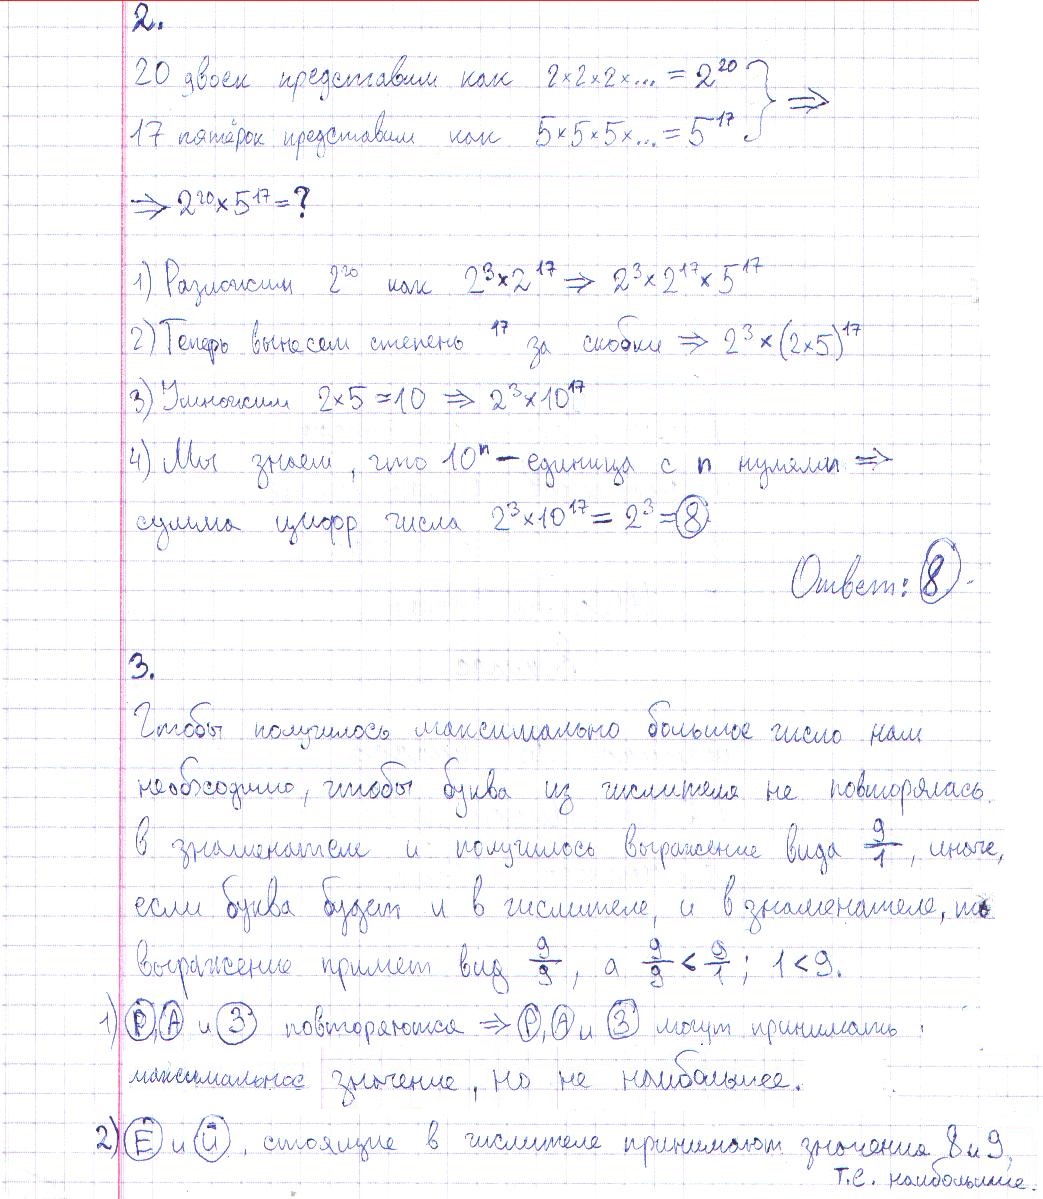 2.
20 двоек представим как 2×2×2×... = 2²⁰ } ⇒
17 пятёрок представим как 5×5×5×... = 5¹⁷
⇒ 2²⁰×5¹⁷=?
1) Разложим 2²⁰ как 2³×2¹⁷ ⇒ 2³×2¹⁷×5¹⁷
2) Теперь вынесем степень ¹⁷ за скобки ⇒ 2³×(2×5)¹⁷
3) Умножим 2×5=10 ⇒ 2³×10¹⁷
4) Мы знаем, что 10ⁿ – единица с n нулями ⇒
сумма цифр числа 2³×10¹⁷ = 2³ = 8
Ответ: 8.
3.
Чтобы получилось максимально большое число нам
необходимо, чтобы буква из числителя не повторялась
в знаменателе и получилось выражение вида 9/1, иначе,
если буква будет и в числителе, и в знаменателе, то
выражение примет вид 9/9, а 9/9 < 9/1; 1<9.
1) Р, А и З повторяются ⇒ Р, А и З могут принимать
максимальное значение, но не наибольшее.
2) Е и Й, стоящие в числителе принимают значения 8 и 9,
т.е. наибольшие.